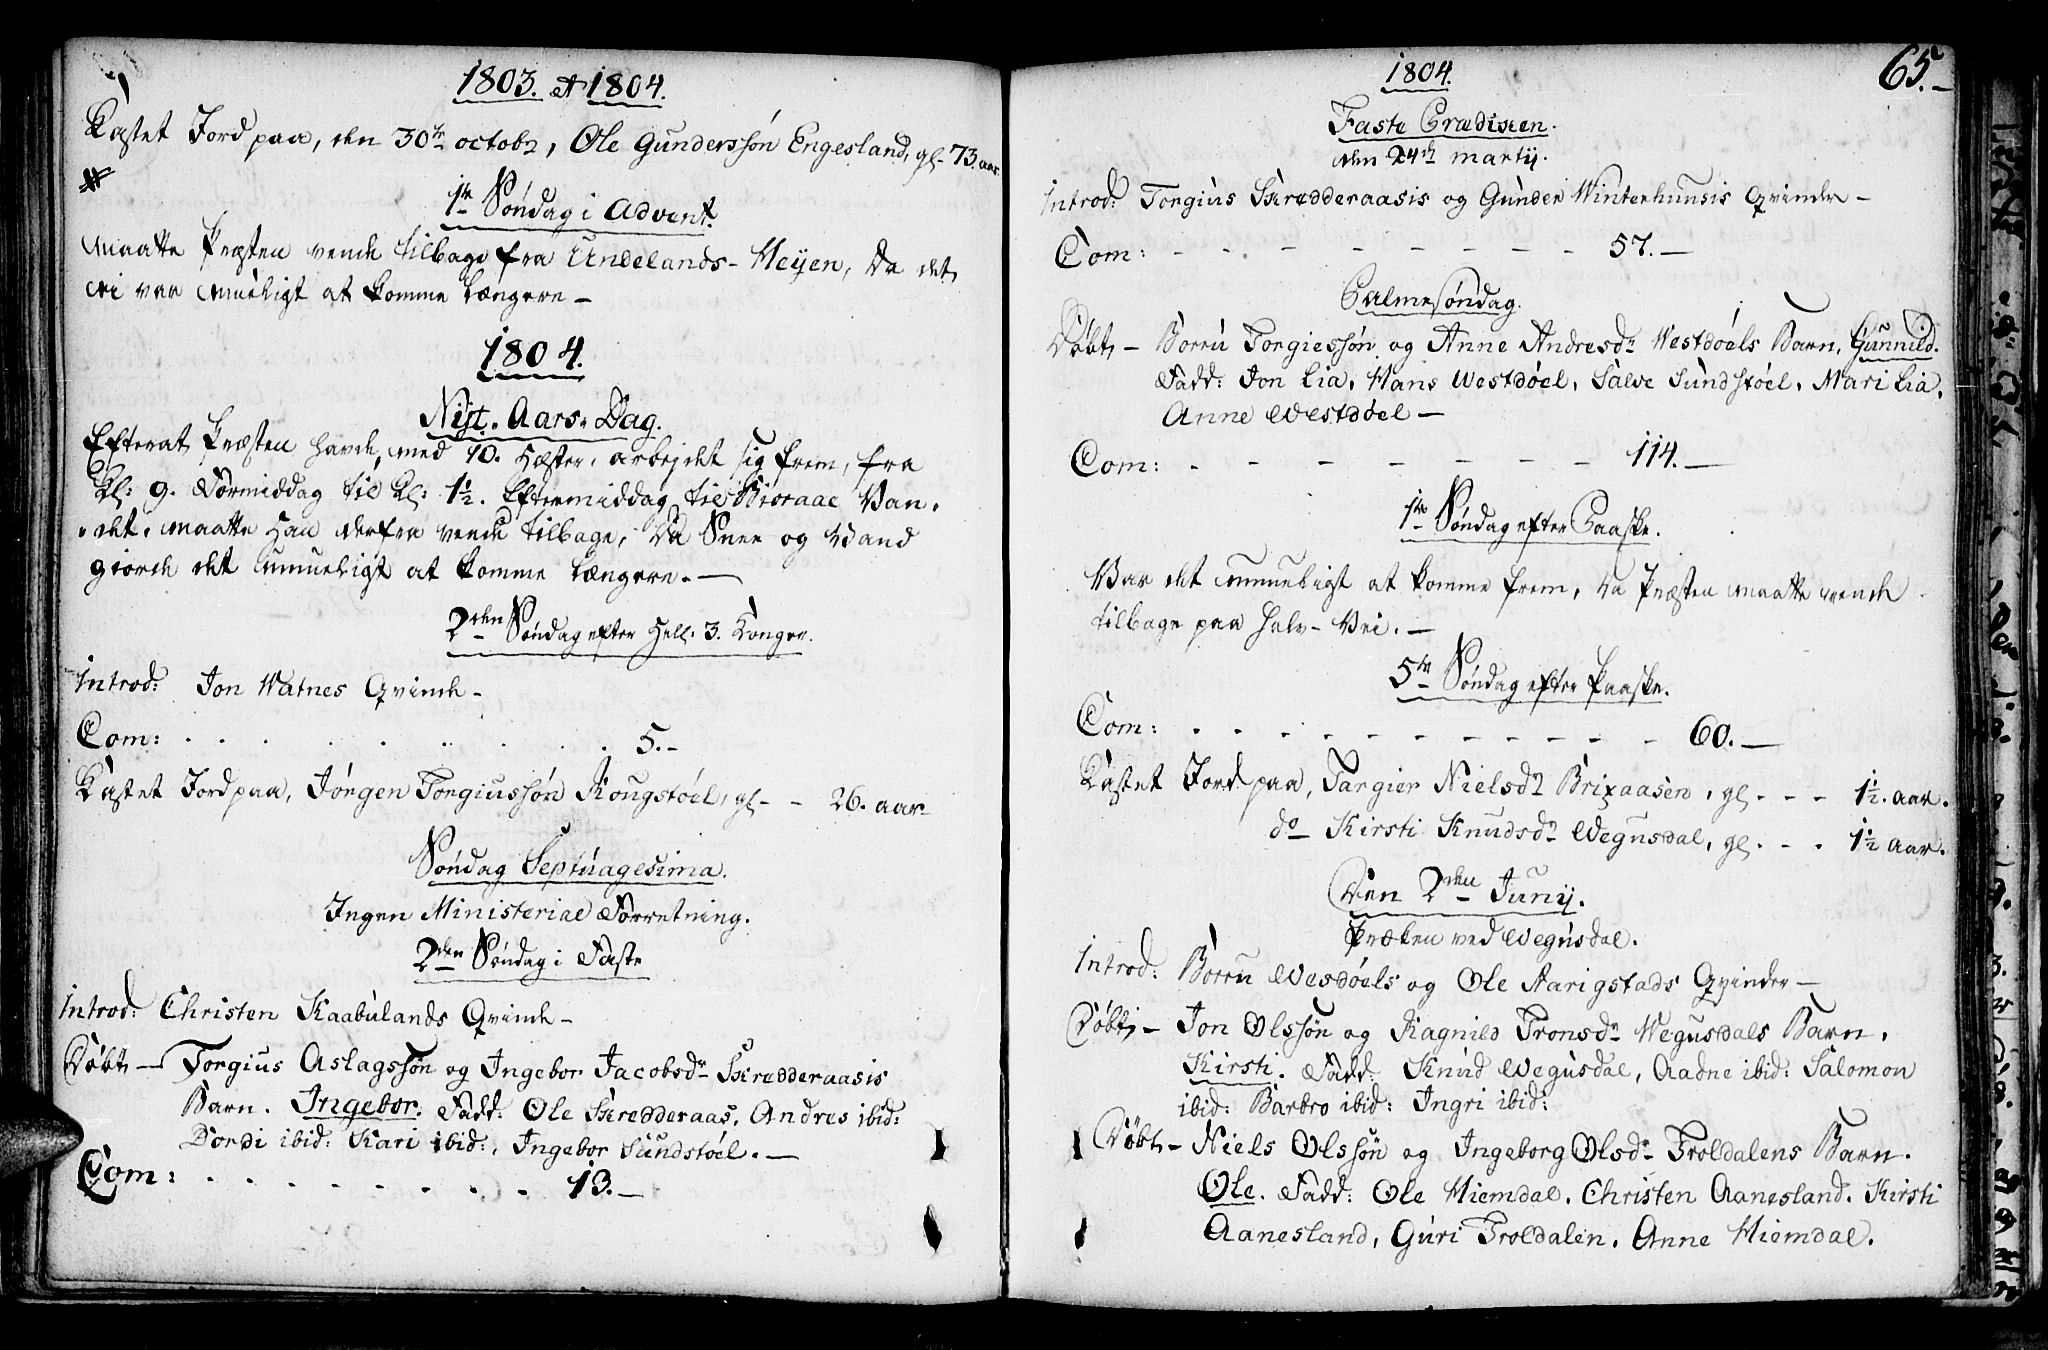 1803. et 1804.
Kastet Jord paa, den 30te octobr, Ole Gunderssøn Engesland, gl. 73. aar
1te Søndag i Advent.
maatte Præsten vende tilbage fra Undelands-Heyen, da det
ei var mueligt at komme længere –
1804.
Nyt. Aars. Dag.
Efterat Præsten havde, med 10. Hæster, arbejdet sig frem, fra
Kl: 9. Formiddag til Kl: 1½. Eftermiddag til Bioraae Van-
det, maatte Han derfra vende tilbage, da Snee og Vand
giorde det umueligt at komme længere. –
2den Søndag efter Hell: 3. Konger.
Introd: Jon Watnes Qvinde –
Com: . . . . . . . . 5. –
Kastet Jord paa, Jørgen Torgiussøn Kougstøel, gl. – – 26. aar
Søndag Septuagesima.
Ingen Ministerial Forretning.
2den Søndag i Faste
Introd: Christen Kaabulands Qvinde –
Døbt – Torgius Aslagssøn og Ingebor Jacobsdr Skredderaasis
Barn. Ingebor. Fadd: Ole Skredderaas, Andres ibid:
Dordi ibid: Kari ibid:, Ingebor Sundstøel. –
Com: . . . . . . . . 13. –
65. –
1804.
Faste Prædiken.
den 24de martij.
Introd: Torgius Skredderaasis og Gunder Winterhuusis Qvinder –
Com: – – – – – – – 57. –
Palmesøndag.
Døbt – Borru Torgiessøn og Anne Andresdr Westdøels Barn, Gunnild.
Fadd: Jon Lia, Hans Westdøel, Salve Sundstøel, Mari Lia,
Anne Westdøel –
Com: – – – – – – – 114. –
1te Søndag efter Paaske.
Var det umueligt at komme frem, da Præsten maatte vende
tilbage paa halv-Vei. –
5te Søndag efter Paaske.
Com: . . . . . . . . . . 60. –
Kastet Jord paa, Targier Nielsdr Brixaasen, gl. – – 1½. aar.
do – Kirsti Knudsdr Wegusdal, gl. – – 1½ aar.
Den 2den Junij.
Præken ved Wegusdal.
Introd: Borru Wesdøels og Ole Aarigstads Qvinder –
Døbt – Jon Olssøn og Ragnild Tronsdr Wegusdals Barn.
Kirsti. Fadd: Knud Wegusdal, Aadne ibid: Salomon
ibid: Barbro ibid: Ingri ibid:
Døbt – Niels Olssøn og Ingeborg Olsdr Troldalens Barn.
Ole. Fadd: Ole Hiemdal, Christen Aanesland, Kirsti
Aanesland, Guri Troldalen, Anne Hiemdal.